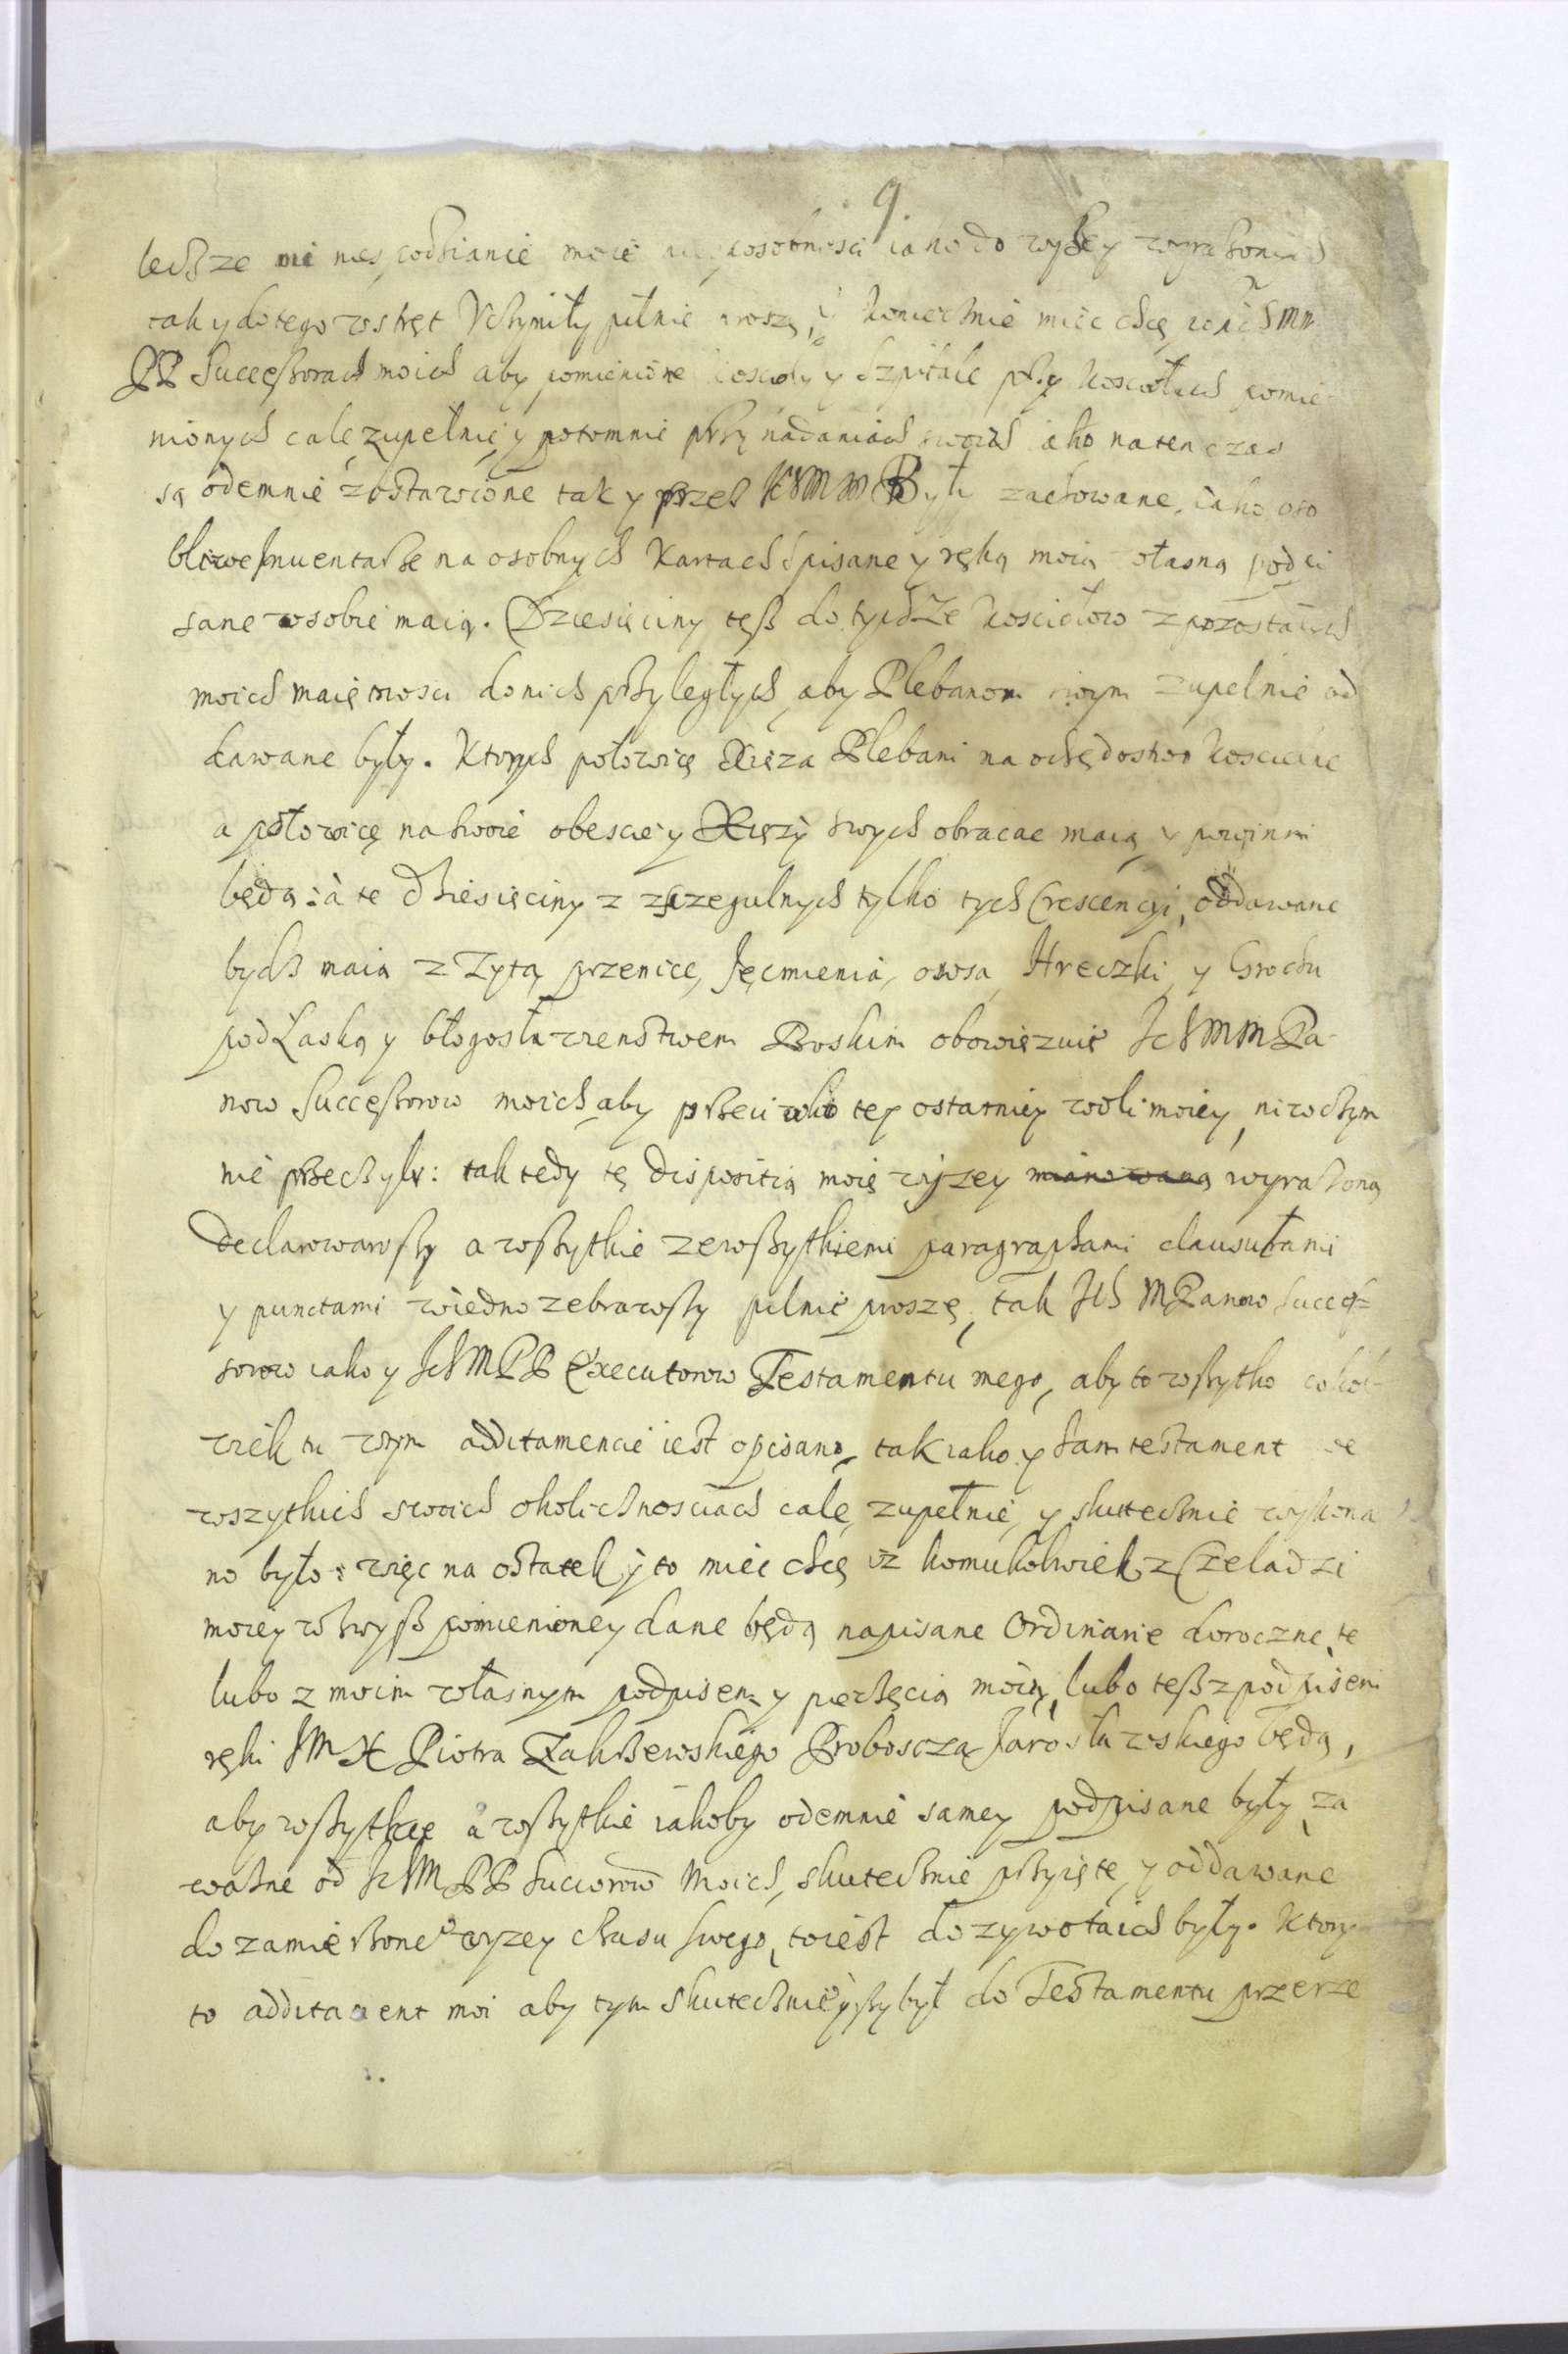 9.
iako do wyszey wyrazonych
tak y do tego wstręt Vczyniły pilnie proszę, y koniecznie mieć chcę
PP Successorach moich aby pomienione koscioły y Szpitale przy kosciołach pomie
nionych cale zupełnie, y potomnie przy nadaniach swoich iako natenczas
są odemnie zostawione tak y przez IchMM PP były zachowane, iako oso
bliwe Inuentarze na osobnych Kartach spisane y ręką moią własną podpi
sane w sobie maią. Dziesięciny tesz do tychze kosciołow z pozostałych
moich maiętnosci do nich przyległych, aby Plebanom swym zupelnie od
dawane były. Ktorych połowicę Xięza Plebani na ochędostwo koscielne
a połowicę na swoie obescie y Xięzy swych obracac maią, y powinni
będą: à te dziesięciny z szczegulnych tylko tych Crescencyi, oddawane
bydz maią z Zyta, przenice, Jęcmienia, owsa, Hreczki, y Grochu
pod Łaską y błogosławienstwem Boskim obowięzuię IchMM Pa-
now Successorow moich, aby przeciwko tey ostatniey woli moiey, ni w czym
nie przeczyły: tak tedy tę dispositią moię wyzey mianowaną wyrazoną
declarowawszy a wszytkie ze wszytkiemi paragraphami clausułami
y punctami w iedno zebrawszy pilnie proszę, tak Ich MPanow Succes=
sorow iako y IchMPP Executorow Testamentu mego, aby to wszytko cokol-
wiek tu w tym additamencie iest opisano, tak iako y sam testament we
wszytkich swoich okolicznosciach cale, zupełnie, y skutecznie wykona
no było: więc na ostatek y to mieć chcę iz komukolwiek z Czeladzi
moiey w zwysz pomienioney dane będą napisane Ordinarie doroczne, te
lubo z moim własnym podpisem y pieczęcią moią, lubo tesz z podpisem
ręki JMX Piotra Zakrzewskiego Proboscza Jarosławskiego będą,
aby wszytkie a wszytkie iakoby odemnie samey podpisane były, za
wazne od IchM PP Sucworow moich, skutecznie przyięte, y oddawane
do zamierzone° wyzey czasu swego, to iest do zywota ich były. Ktory
to additament moi aby tym skutecznieyszy był do Testamentu przerze